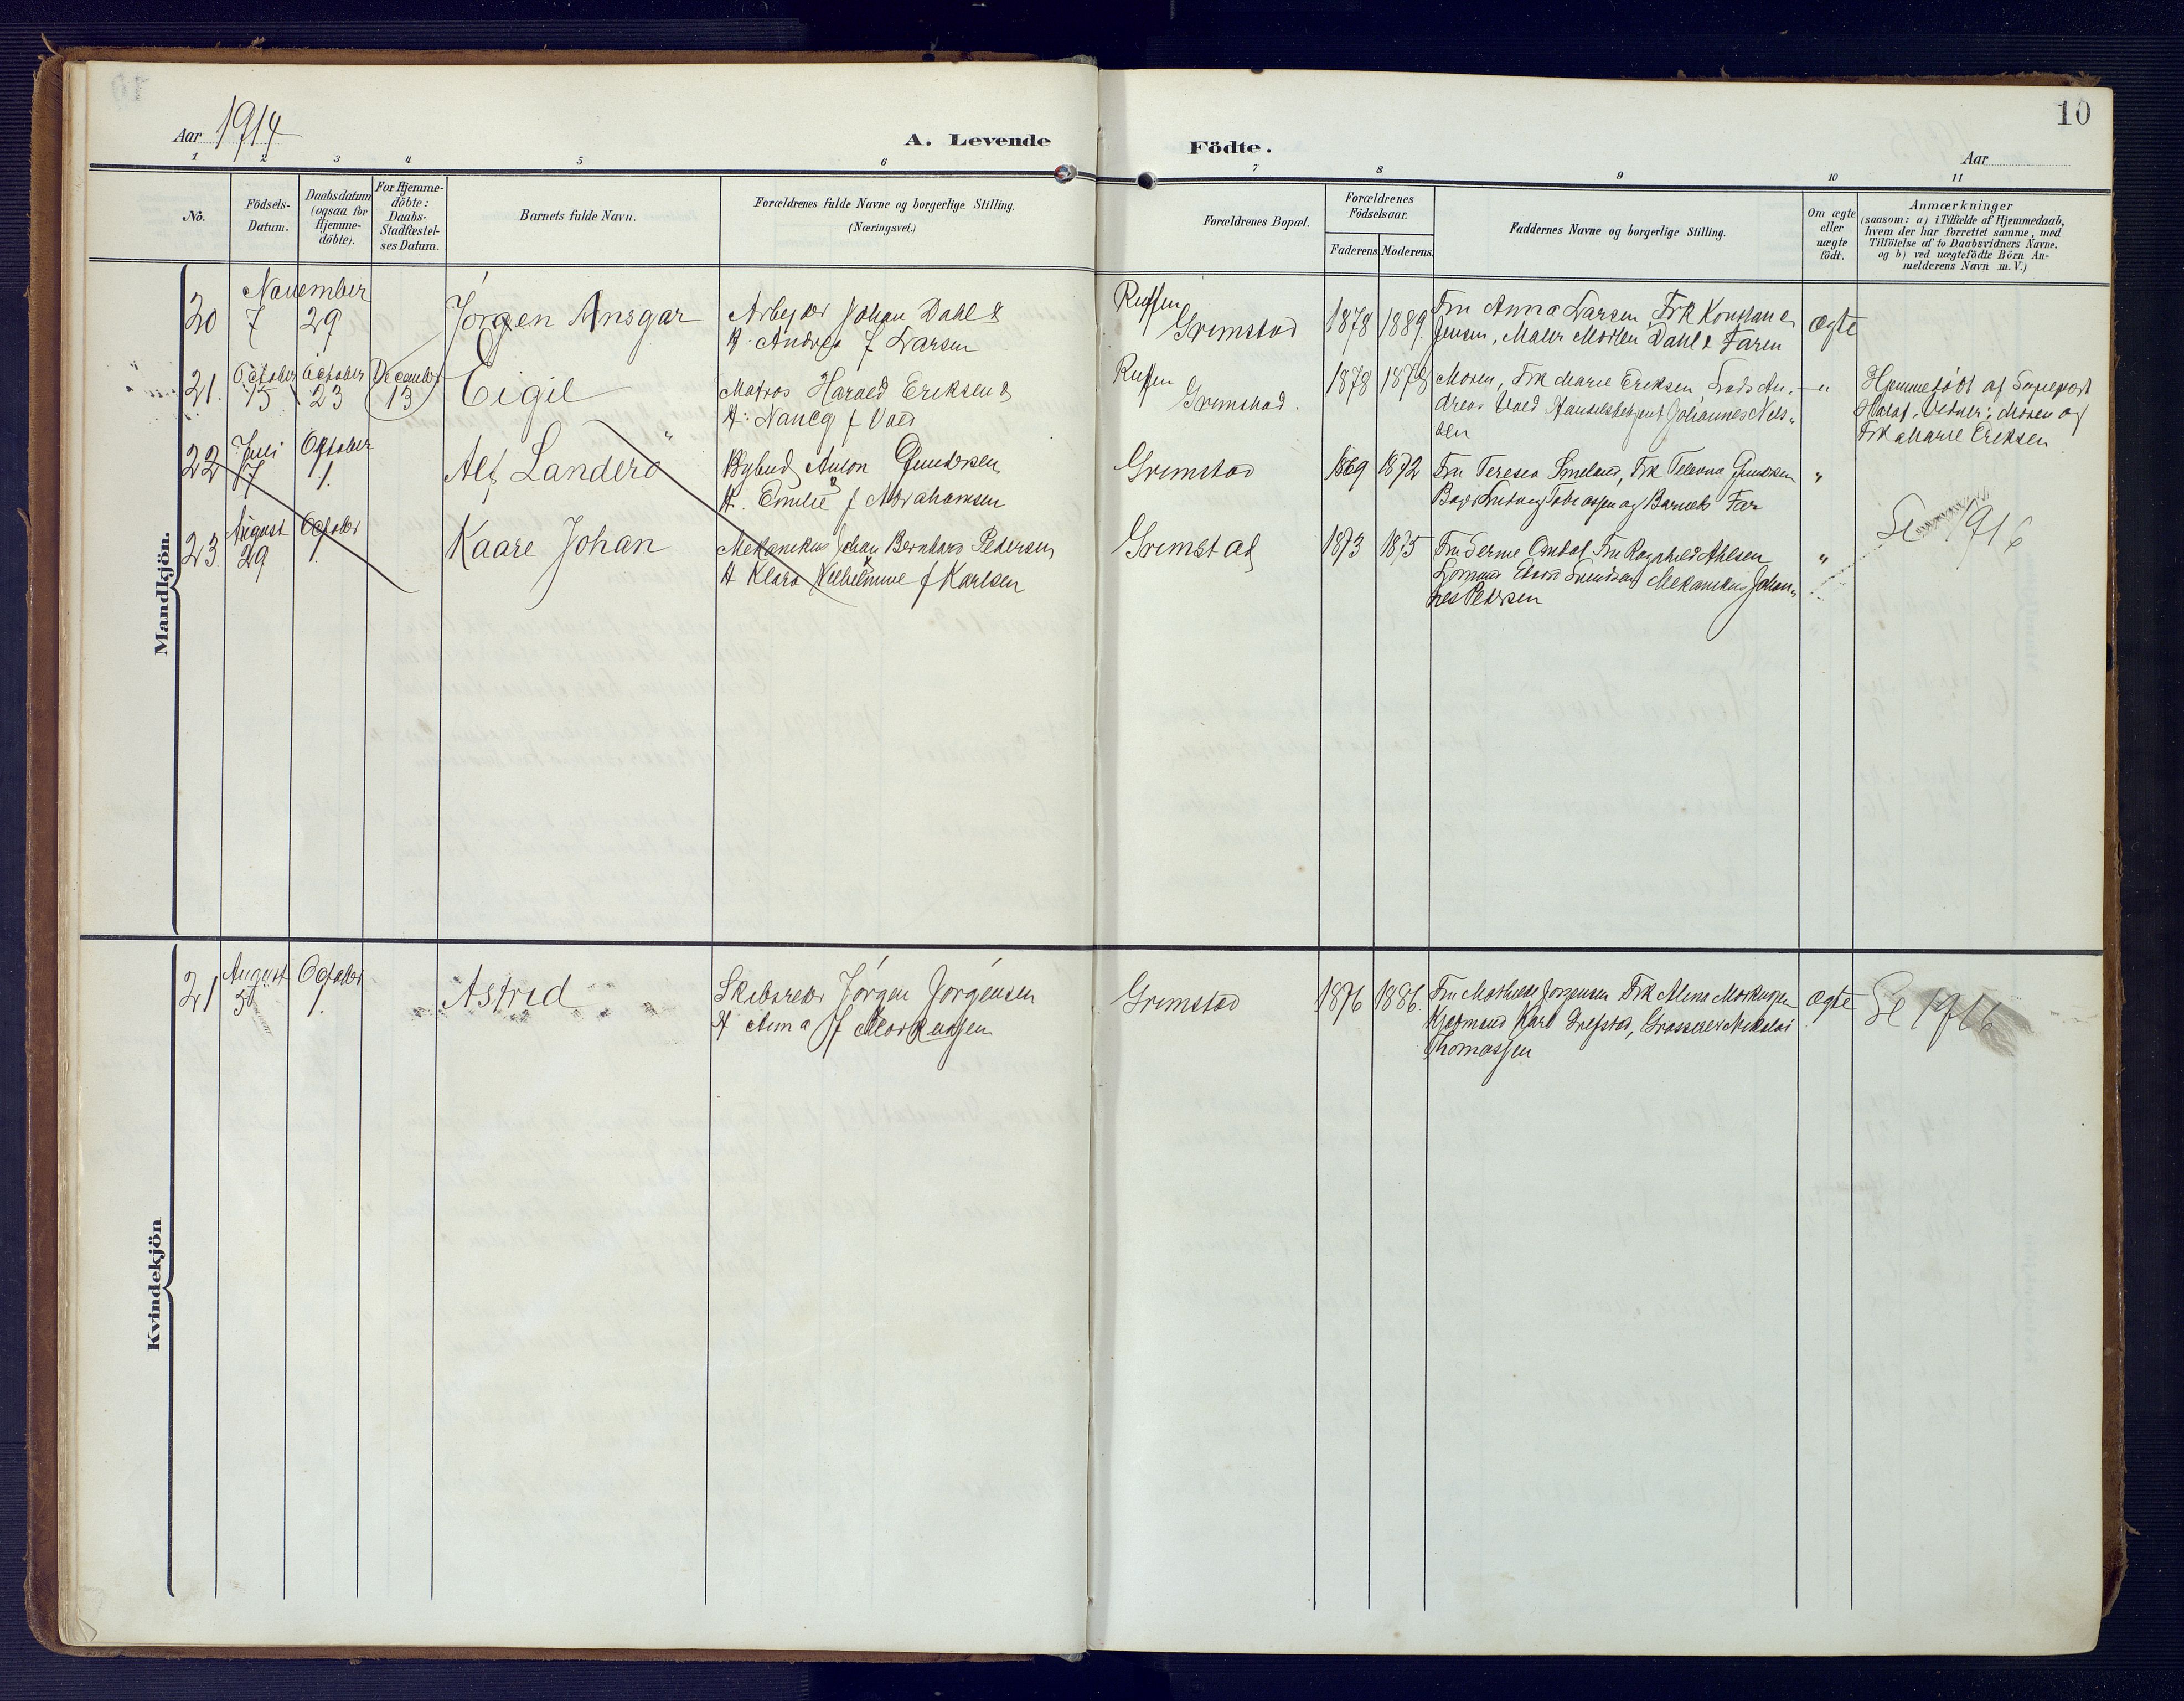 10
Aar 1914
A. Levende Födte.
Aar
1 2 3 4 5 6 7 8 9 10 11
Nö.
Födsels-
Datum.
Daabsdatum
(ogsaa for
Hjemme-
döbte).
For Hjemme-
döbte:
Daabs-
Stadfæstel-
ses Datum.
Barnets fulde Navn.
Forældrenes fulde Navne og borgerlige Stilling.
(Næringsvei.)
Forældrenes Bopæl.
Forældrenes
Födselsaar.
Faderens. Moderens.
Faddernes Navne og borgerlige Stilling.
Om ægte
eller
uægte
födt.
Anmærkninger
(saasom: a) i Tilfælde af Hjemmedaab,
hvem der har forrettet samme, med
Tilföielse af to Daabsvidners Navne.
og b) ved uægtefödte Börn An-
melderens Navn m. V.)
Mandkjön.
November
20 7 29 Jörgen Ansgar Arbejder Johan Dahl &
H. Andrea f Larsen
Grimstad 1878 1889
Fru Anna Larsen, Frk Konstance
Jensen, Maler Morten Dahl & Faren
ægte
21. October 15 October 23 December 13 Eigil Matros Harald Eriksen &
H: Nancy f Vold
Grimstad. 1878 1878
Moren, Frk Marie Eriksen, An-
dreas Vold Handelsbetjent Johannes Niel-
sen
"
Hjemmedöbt af
Vidner: Moren og
Frk Marie Eriksen
22 Juli 17 October 1. Alf Landerö Bybud Anton Gundersen
& H. Emilie f Abrahamsen
Grimstad 1869 1872
Fru Teresia Smeland, Frk Gundersen
Tobiassen og Barnets Far
"
23. August 29 October 1. Kaare Johan Mekanikus Johan Bernhard Pedersen
& H Klara Wilhelmine f Karlsen
Grimstad 1873 1875
Fru Omdal, Fru Ragnhild Ahlsen
Svendsen, Mekanikus Johan-
nes Pedersen
"
Se 1916
Kvindekjön
21 August 31 October 1. Astrid Skibsreder Jörgen Jörgensen
H Anna f Morkensen
Grimstad 1876 1886.
Fru Mathilde Jörgensen Frk Alma
Kjöpmand Karl Grefstad, Grosserer Nikolai
Thomassen
ægte
Se 1916